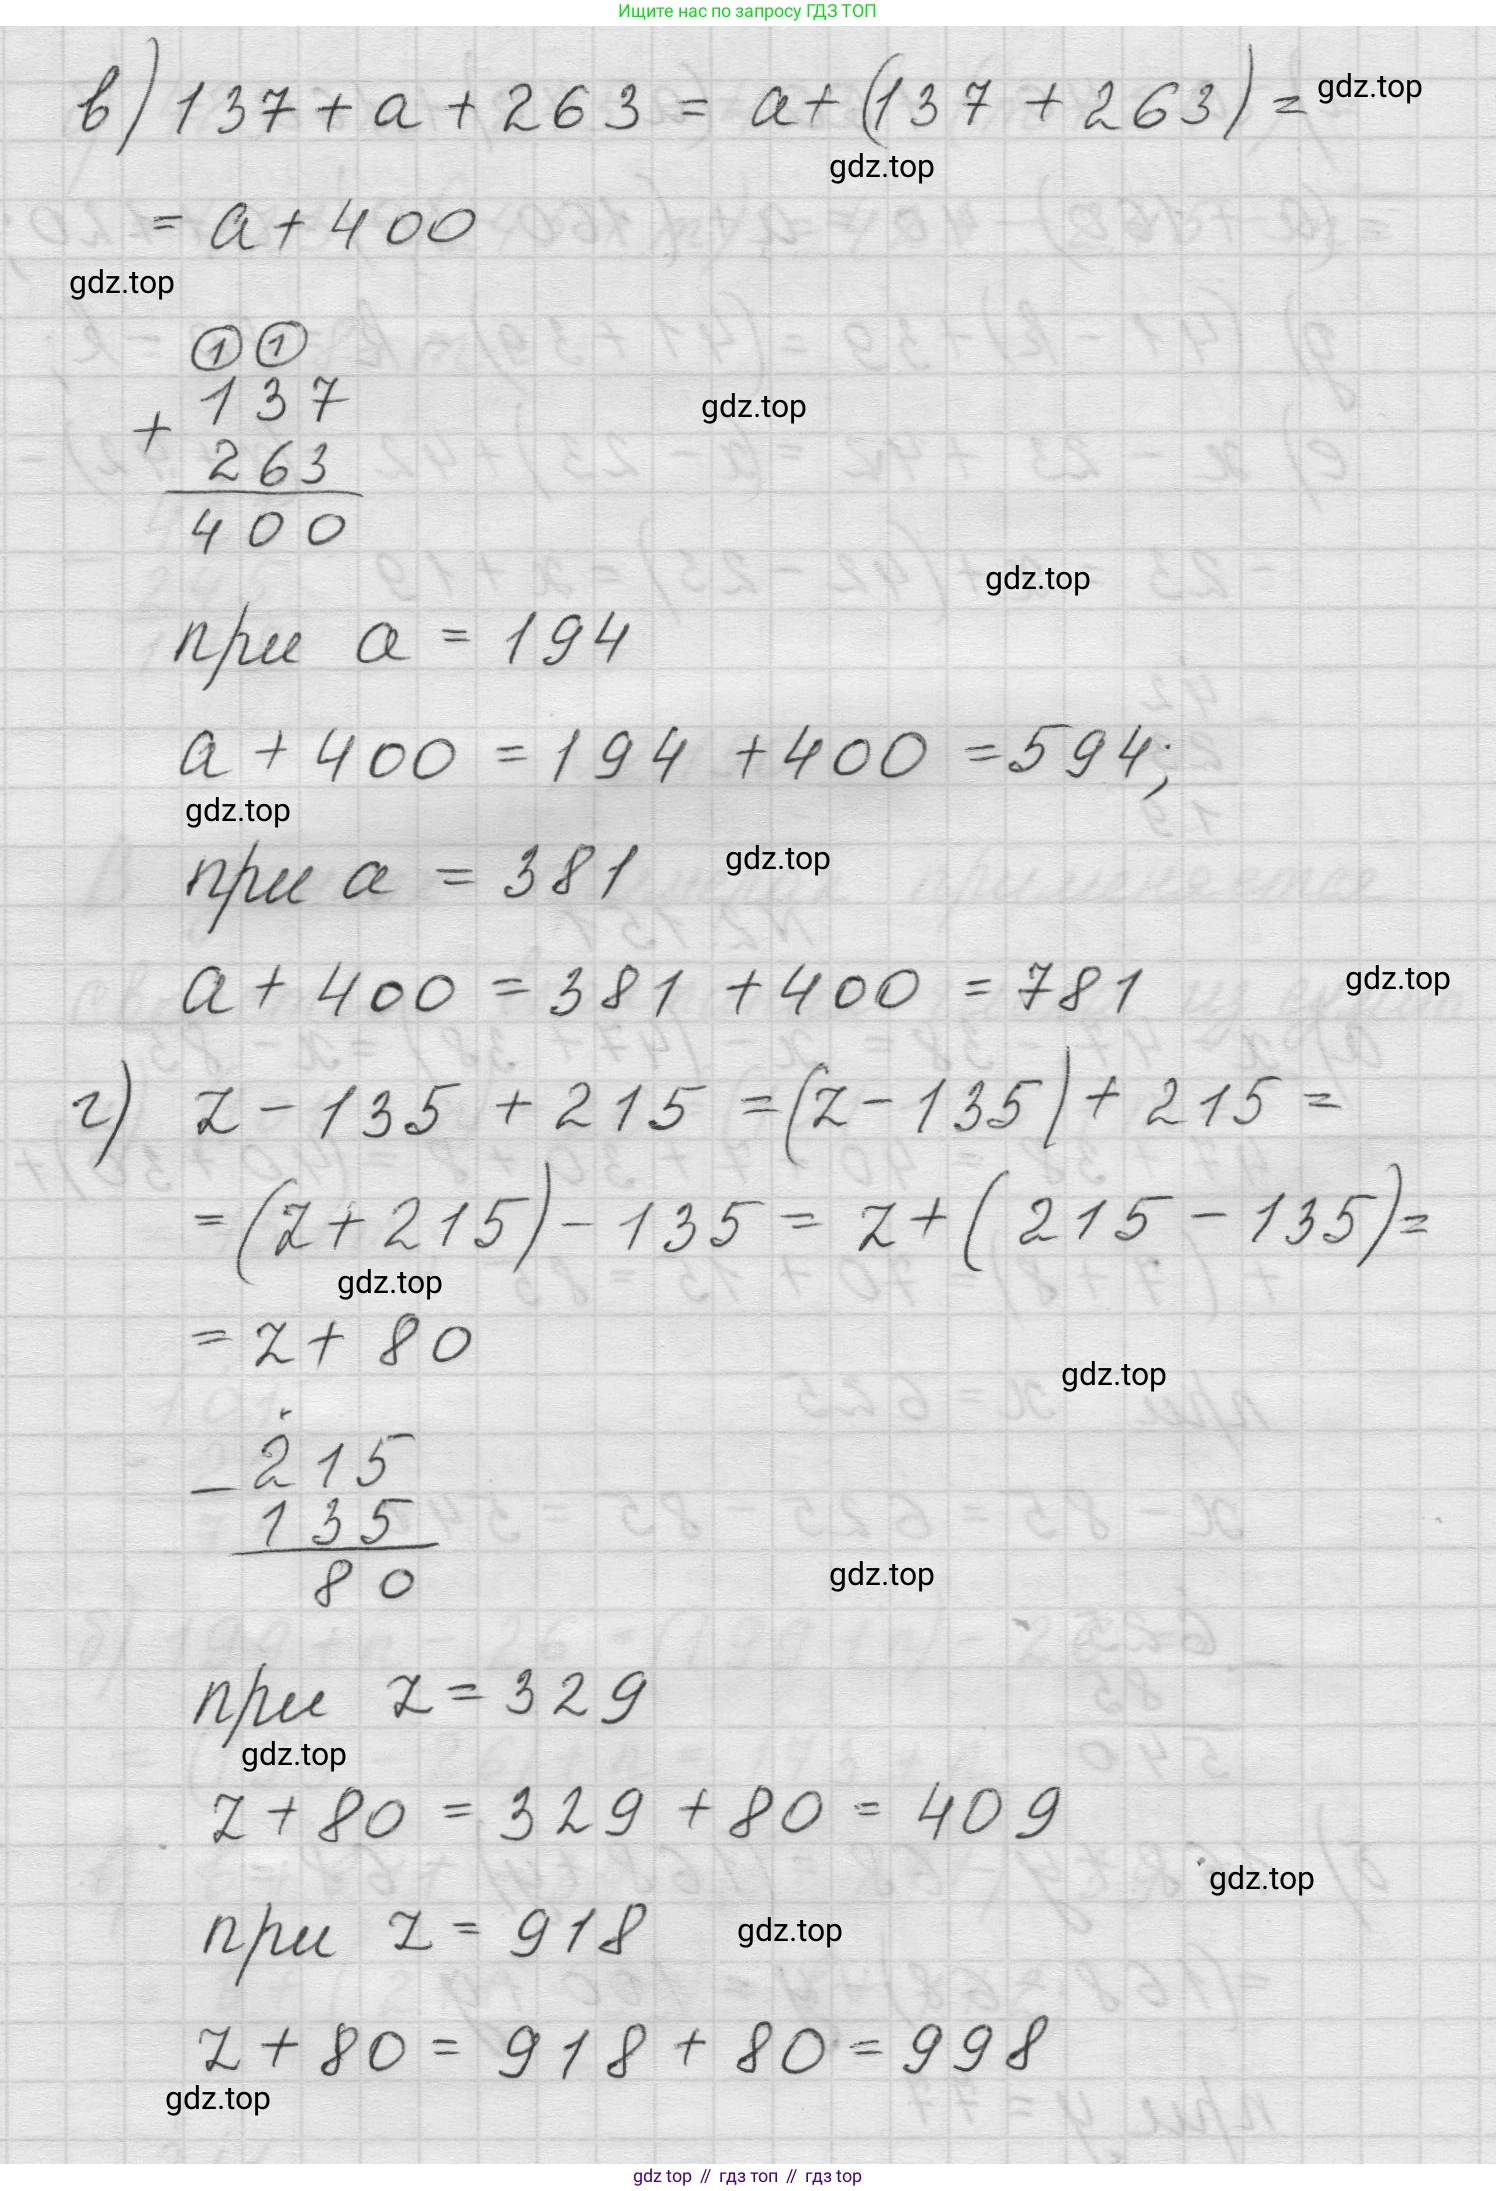 Ищите нас по запросу ГДЗ ТОП
в) 137 + a + 263 = a + (137 + 263) =
gdz.top
gdz.top
= a + 400
gdz.top
1 1
+ 137
gdz.top
263
400
gdz.top
при a = 194
a + 400 = 194 + 400 = 594;
gdz.top
при a = 381
gdz.top
a + 400 = 381 + 400 = 781
gdz.top
г) z - 135 + 215 = (z - 135) + 215 =
= (z + 215) - 135 = z + (215 - 135) =
gdz.top
= z + 80
gdz.top
- 215
135
80
gdz.top
при z = 329
gdz.top
z + 80 = 329 + 80 = 409
gdz.top
при z = 918
gdz.top
z + 80 = 918 + 80 = 998
gdz.top
gdz top // гдз топ // гдз top